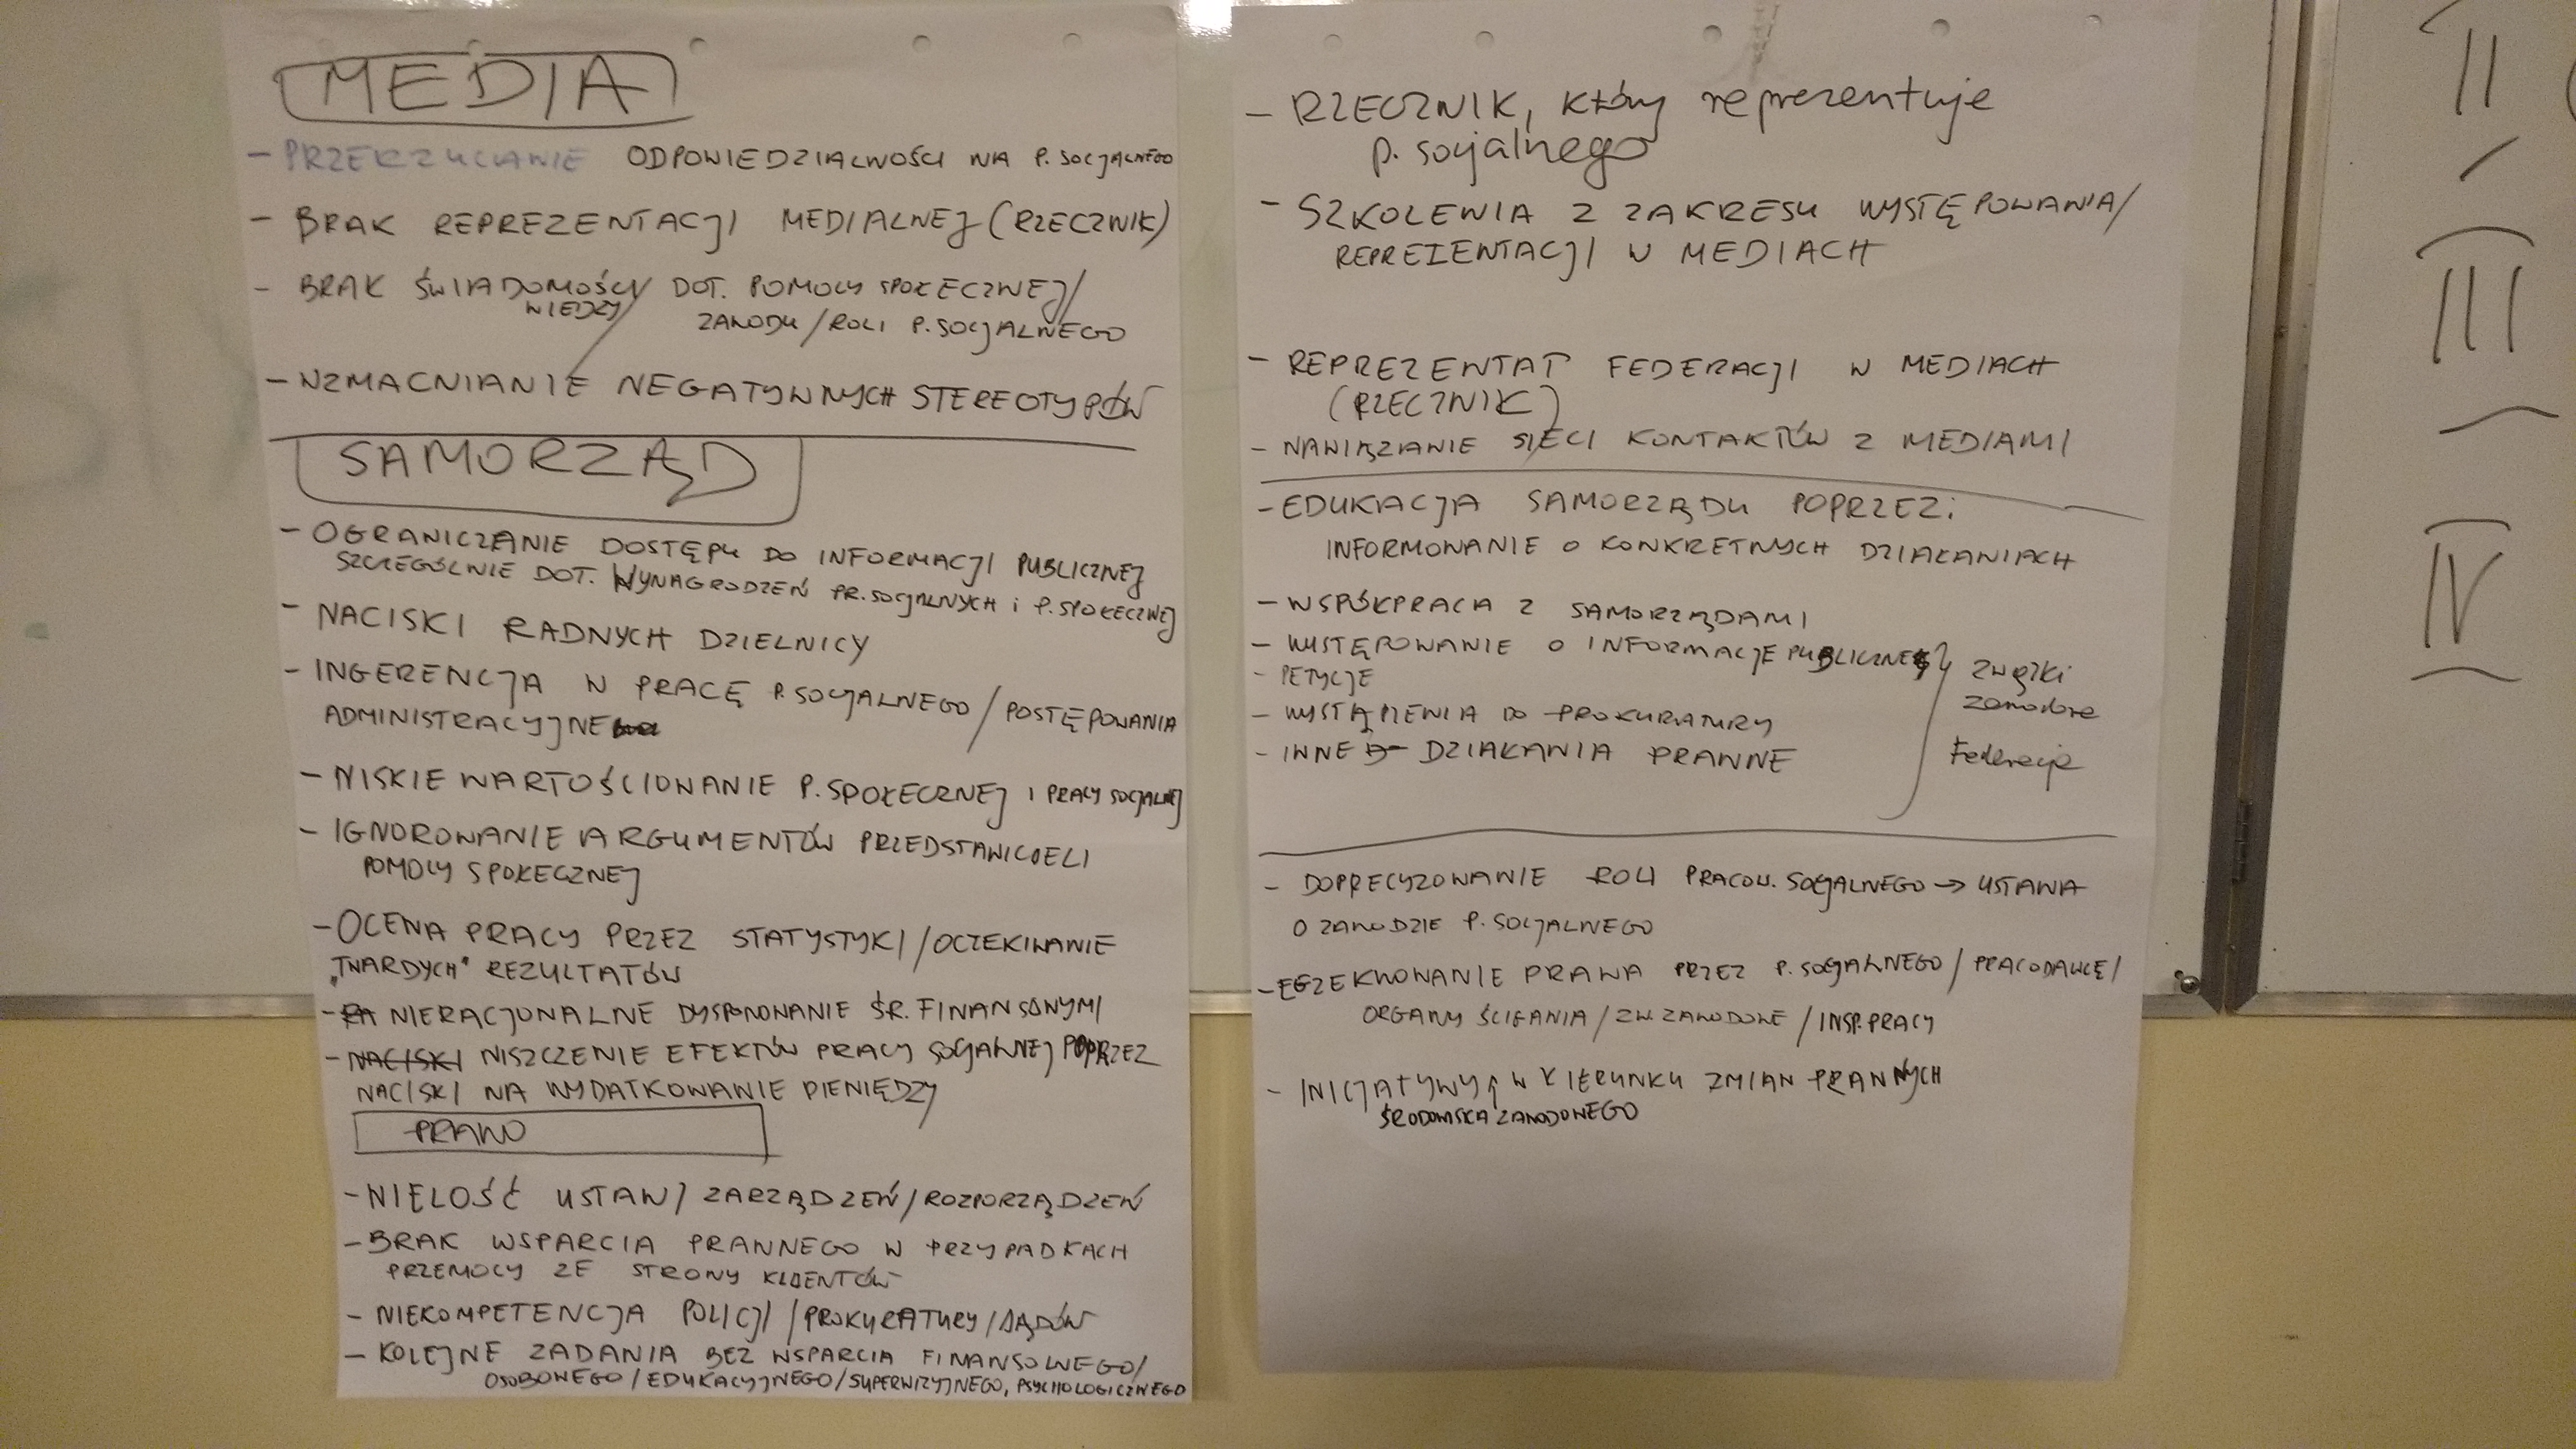 MEDIA
- PRZERZUCANIE ODPOWIEDZIALNOŚCI NA P. SOCJALNEGO
- BRAK REPREZENTACJI MEDIALNEJ (RZECZNIK)
- BRAK ŚWIADOMOŚCI/ DOT. POMOCY SPOŁECZNEJ/
WIEDZY/ ZAWODU/ROLI P. SOCJALNEGO
- WZMACNIANIE NEGATYWNYCH STEREOTYPÓW
SAMORZĄD
- OGRANICZANIE DOSTĘPU DO INFORMACJI PUBLICZNEJ
SZCZEGÓLNIE DOT. WYNAGRODZEŃ PR. SOCJALNYCH i P. SPOŁECZNEJ
- NACISKI RADNYCH DZIELNICY
- INGERENCJA W PRACĘ P. SOCJALNEGO / POSTĘPOWANIA
ADMINISTRACYJNE
- NISKIE WARTOŚCIOWANIE P. SPOŁECZNEJ I PRACY SOCJALNEJ
- IGNOROWANIE ARGUMENTÓW PRZEDSTAWICIELI
POMOCY SPOŁECZNEJ
- OCENA PRACY PRZEZ STATYSTYKI/OCZEKIWANIE
„TWARDYCH" REZULTATÓW
- RA NIERACJONALNE DYSPONOWANIE ŚR. FINANSOWYMI
- NACISKI NISZCZENIE EFEKTÓW PRACY SOCJALNEJ POPRZEZ
NACISKI NA WYDATKOWANIE PIENIĘDZY
PRAWO
- WIELOŚĆ USTAW/ ZARZĄDZEŃ/ROZPORZĄDZEŃ
- BRAK WSPARCIA PRAWNEGO W PRZYPADKACH
PRZEMOCY ZE STRONY KLIENTÓW
- NIEKOMPETENCJA POLICJI /PROKURATURY/SĄDÓW
- KOLEJNE ZADANIA BEZ WSPARCIA FINANSOWEGO/
OSOBOWEGO/EDUKACYJNEGO/SUPERWIZYJNEGO, PSYCHOLOGICZNEGO
- RZECZNIK, który reprezentuje
p. socjalnego
- SZKOLENIA Z ZAKRESU WYSTĘPOWANIA/
REPREZENTACJI W MEDIACH
- REPREZENTAT FEDERACJI W MEDIACH
(RZECZNIK)
- NAWIĄZANIE SIECI KONTAKTÓW Z MEDIAMI
- EDUKACJA SAMORZĄDU POPRZEZ:
INFORMOWANIE O KONKRETNYCH DZIAŁANIACH
- WSPÓŁPRACA Z SAMORZĄDAMI
- WYSTĘPOWANIE O INFORMACJE PUBLICZNE
- PETYCJE
- WYSTĄPIENIA DO PROKURATURY
- INNE DZIAŁANIA PRAWNE
związki
zawodowe
Federacja
- DOPRECYZOWANIE ROLI PRACOW. SOCJALNEGO → USTAWA
O ZAWODZIE P. SOCJALNEGO
- EGZEKWOWANIE PRAWA PRZEZ P. SOCJALNEGO/ PRACODAWCĘ/
ORGANY ŚCIGANIA / ZW. ZAWODOWE / INSP. PRACY
- INICJATYWY W KIERUNKU ZMIAN PRAWNYCH
ŚRODOWISKA ZAWODOWEGO
II
III
IV